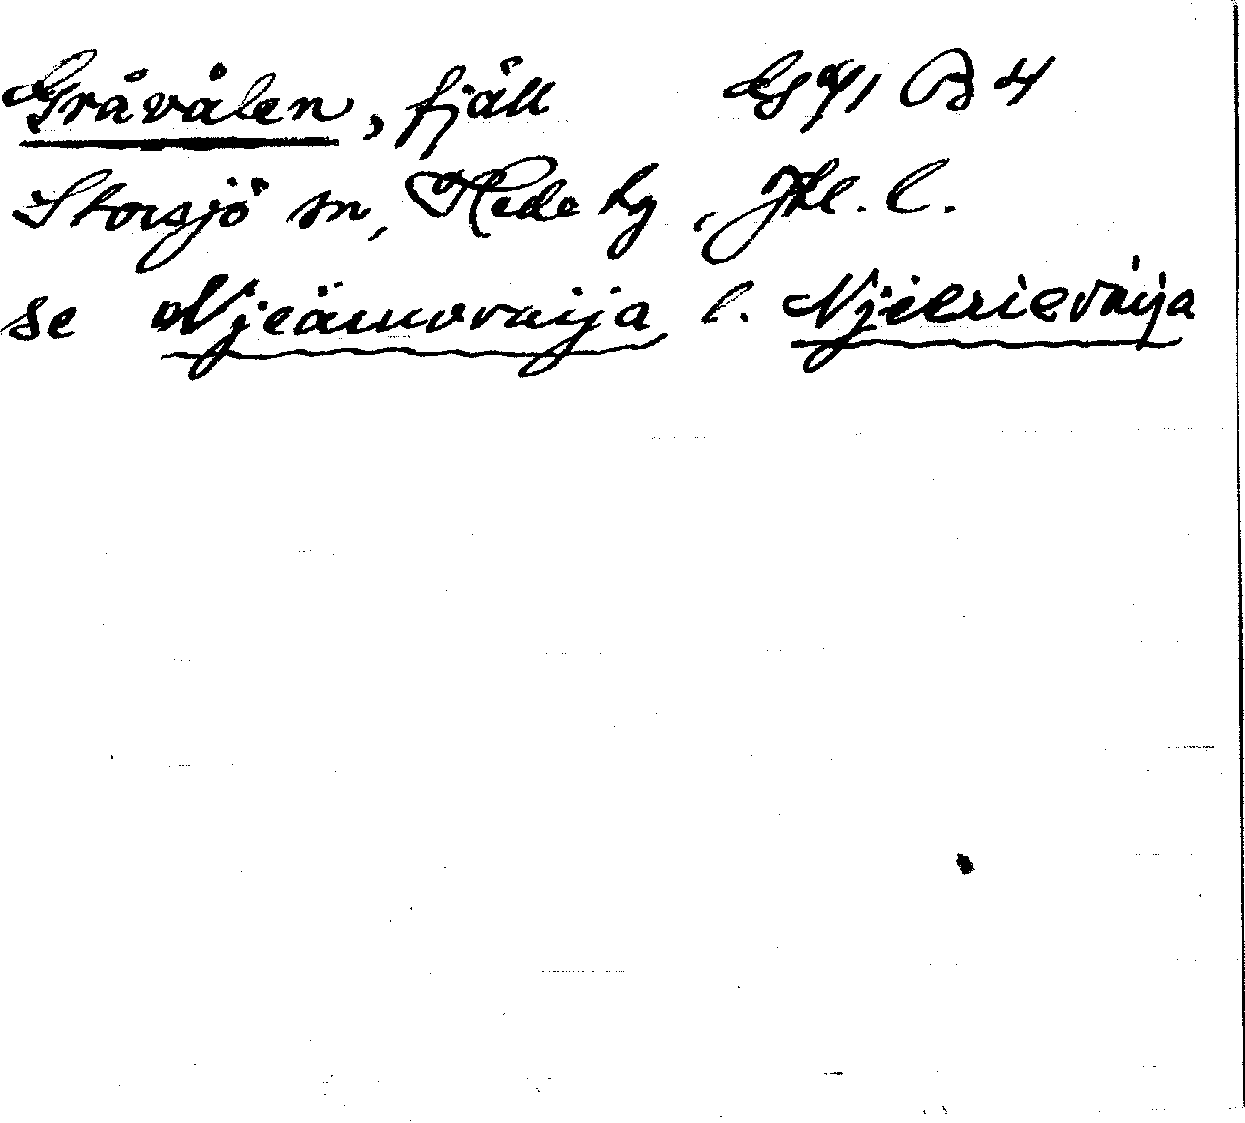 Gråvålen, fjäll Gg 41 B 4
Storsjö sn, Hede hg, Jtl. l.
se Njeämovaija l. Njierievaija